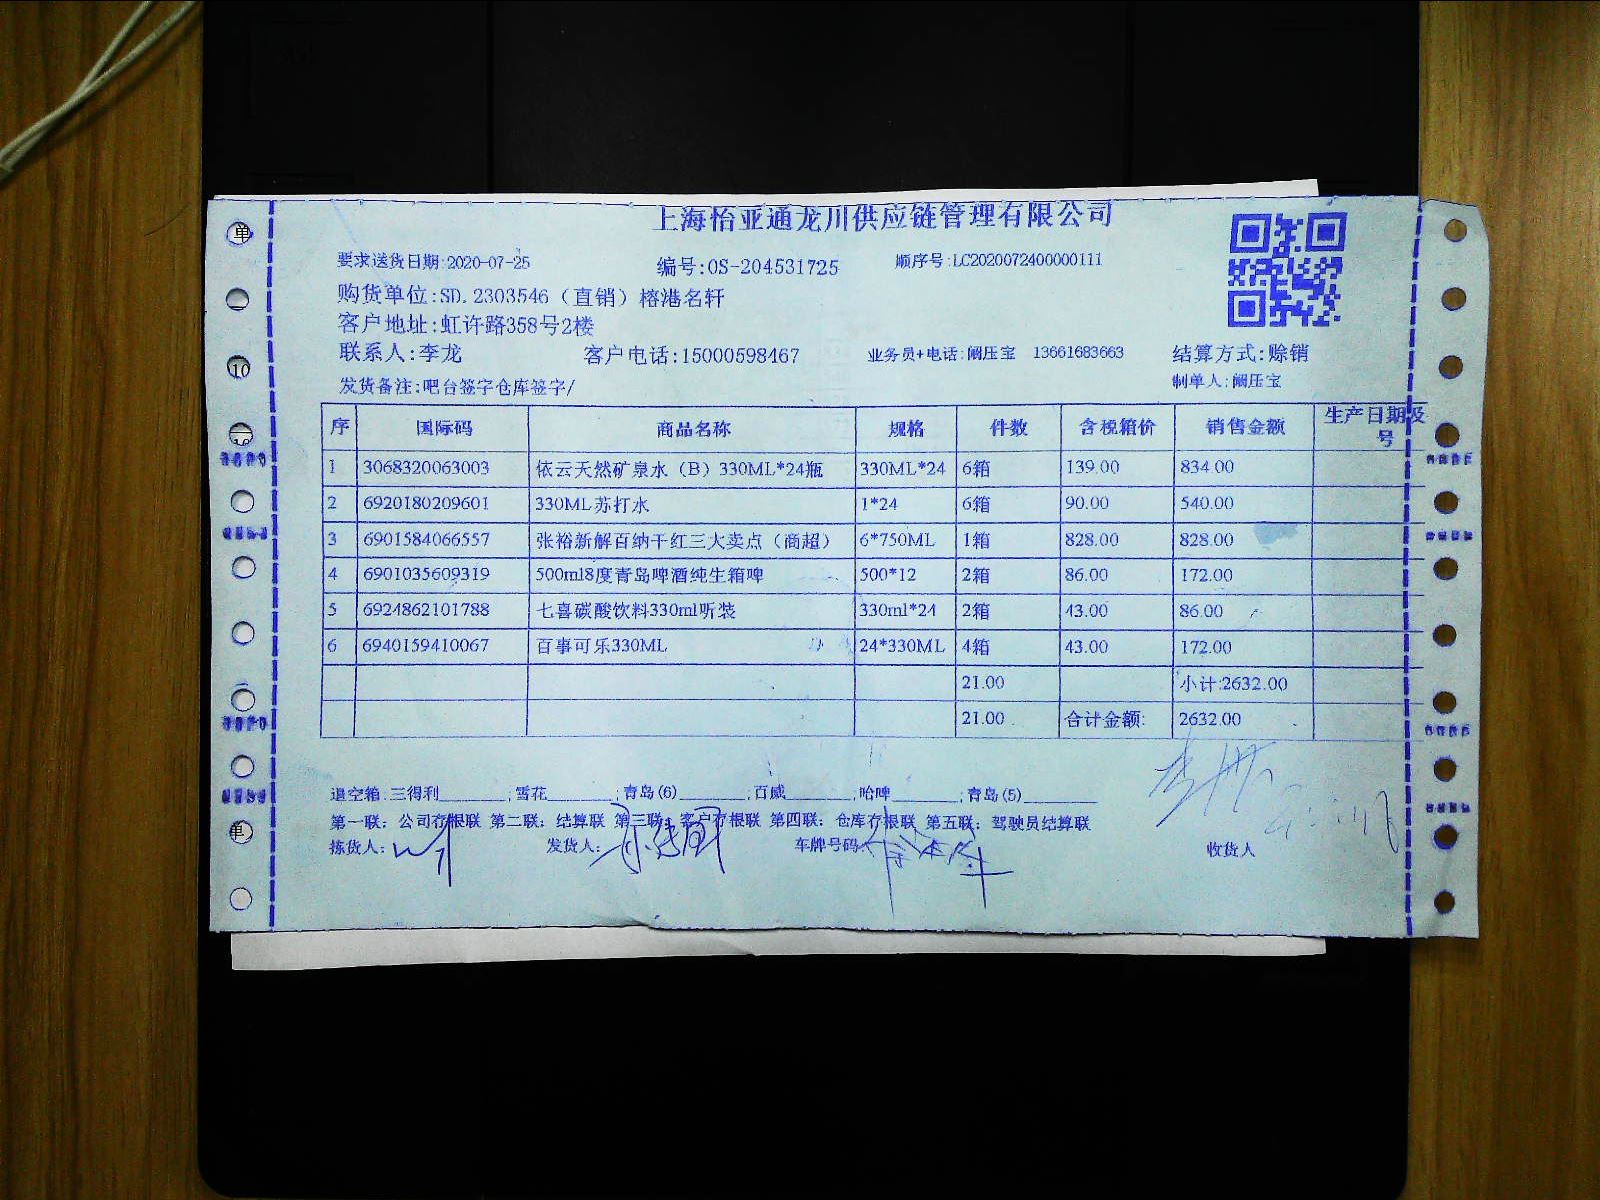 上海怡亚通龙川供应链管理有限公司
要求送货日期:2020-07-25 编号:OS-204531725 顺序号:LC2020072400000111
购货单位:SD.2303546（直销）榕港名轩
客户地址:虹许路358号2楼
联系人:李龙 客户电话:15000598467 业务员+电话:阚压宝 13661683663 结算方式:赊销
发货备注:吧台签字仓库签字/ 制单人:阚压宝
序 国际码 商品名称 规格 件数 含税箱价 销售金额 生产日期及
号
1 3068320063003 依云天然矿泉水（B）330ML*24瓶 330ML*24 6箱 139.00 834.00
2 6920180209601 330ML苏打水 1*24 6箱 90.00 540.00
3 6901584066557 张裕新解百纳干红三大卖点（商超） 6*750ML 1箱 828.00 828.00
4 6901035609319 500ml8度青岛啤酒纯生箱啤 500*12 2箱 86.00 172.00
5 6924862101788 七喜碳酸饮料330ml听装 330ml*24 2箱 43.00 86.00
6 6940159410067 百事可乐330ML 24*330ML 4箱 43.00 172.00
21.00 小计:2632.00
21.00 合计金额: 2632.00
退空箱:三得利______;雪花______;青岛(6)______;百威______;哈啤______;青岛(5)______
第一联：公司存根联 第二联：结算联 第三联：客户存根联 第四联：仓库存根联 第五联：驾驶员结算联
拣货人: 发货人: 车牌号码: 收货人